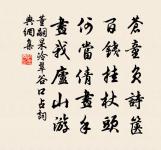 蒼童負詩篋
百錢挂杖頭
何當倩畫手
畫我廬山游
董嗣杲泠翠谷口占詞
典網集